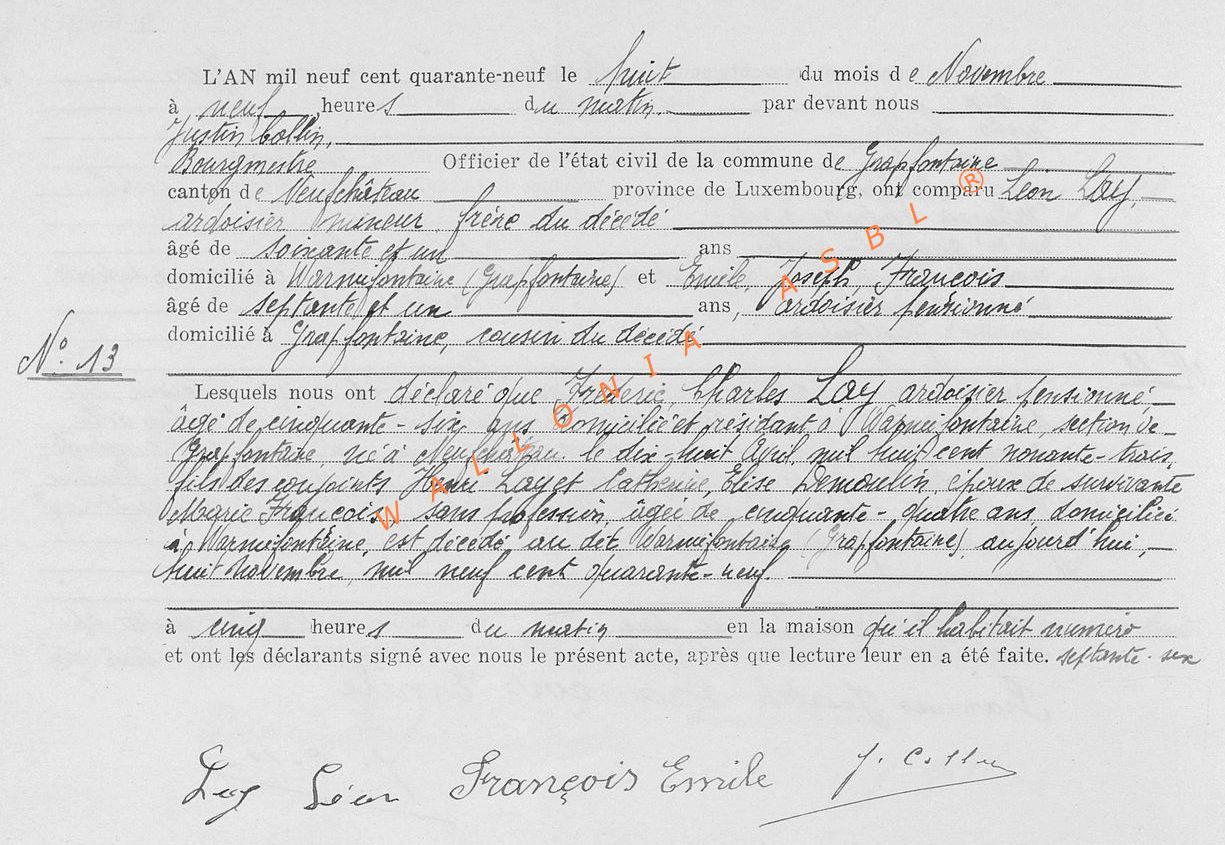 L'AN mil neuf cent quarante-neuf le huit du mois de Novembre
à neuf heures du matin. par devant nous
Justin Collin,
Bourgmestre Officier de l'état civil de la commune de Grapfontaine
canton de Neufchâteau province de Luxembourg, ont comparu Léon Lay,
ardoisier mineur, frère du décédé
âgé de soixante et un ans
domicilié à Warmifontaine (Grapfontaine) et Emile, Joseph, François
âgé de septante et un ans, ardoisier pensionné
domicilié à Grapfontaine, cousin du décédé
N° 13
Lesquels nous ont déclaré que Fréderic, Charles Lay ardoisier pensionné,
âgé de cinquante-six ans domicilié et résidant à Warmifontaine, section de
Grapfontaine, né à Neufchâteau le dix-huit Avril mil huit cent nonante-trois,
fils des conjoints Henri Lay et Catherine, Elise Demoulin, époux de survivante
Marie François, sans profession, âgée de cinquante-quatre ans, domiciliée
à Warmifontaine, est décédé au dit Warmifontaine (Grapfontaine), aujourd'hui,
huit novembre, mil neuf cent quarante-neuf.
à cinq heures du matin en la maison qu'il habitait numéro
et ont les déclarants signé avec nous le présent acte, après que lecture leur en a été faite. septante-six
Lay Léon François Emile J. Collin
WALLONIA ASBL ®